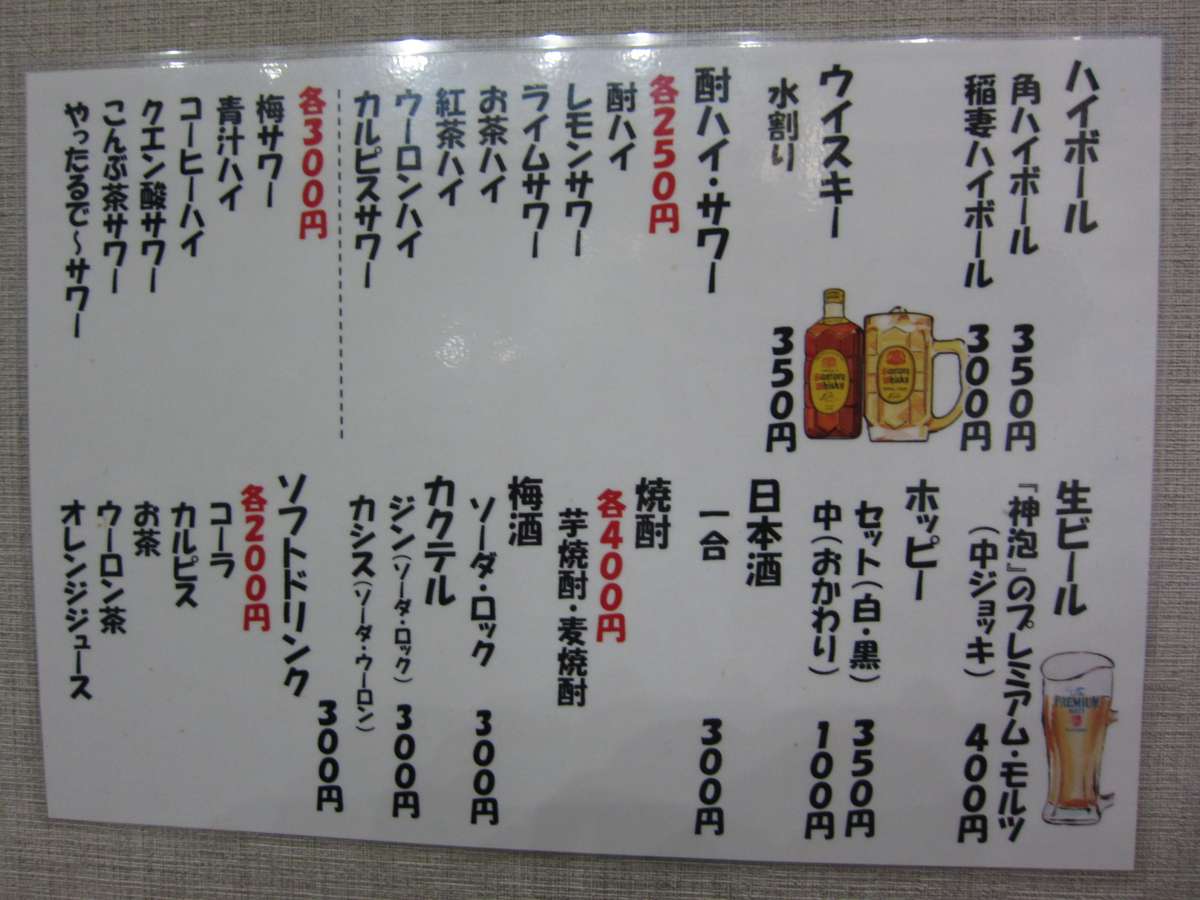 ハイボール
角ハイボール 350円
稲妻ハイボール 300円
ウイスキー
水割り 350円
酎ハイ・サワー
各250円
酎ハイ
レモンサワー
ライムサワー
お茶ハイ
紅茶ハイ
ウーロンハイ
カルピスサワー
各300円
梅サワー
青汁ハイ
コーヒーハイ
クエン酸サワー
こんぶ茶サワー
やったるで～サワー
生ビール
『神泡』のプレミアム・モルツ
(中ジョッキ) 400円
ホッピー
セット(白・黒) 350円
中(おかわり) 100円
日本酒
一合 300円
焼酎
各400円
芋焼酎・麦焼酎
梅酒
ソーダ・ロック 300円
カクテル
ジン(ソーダ・ロック) 300円
カシス(ソーダ・ウーロン) 300円
ソフトドリンク
各200円
コーラ
カルピス
お茶
ウーロン茶
オレンジジュース
PREMIUM